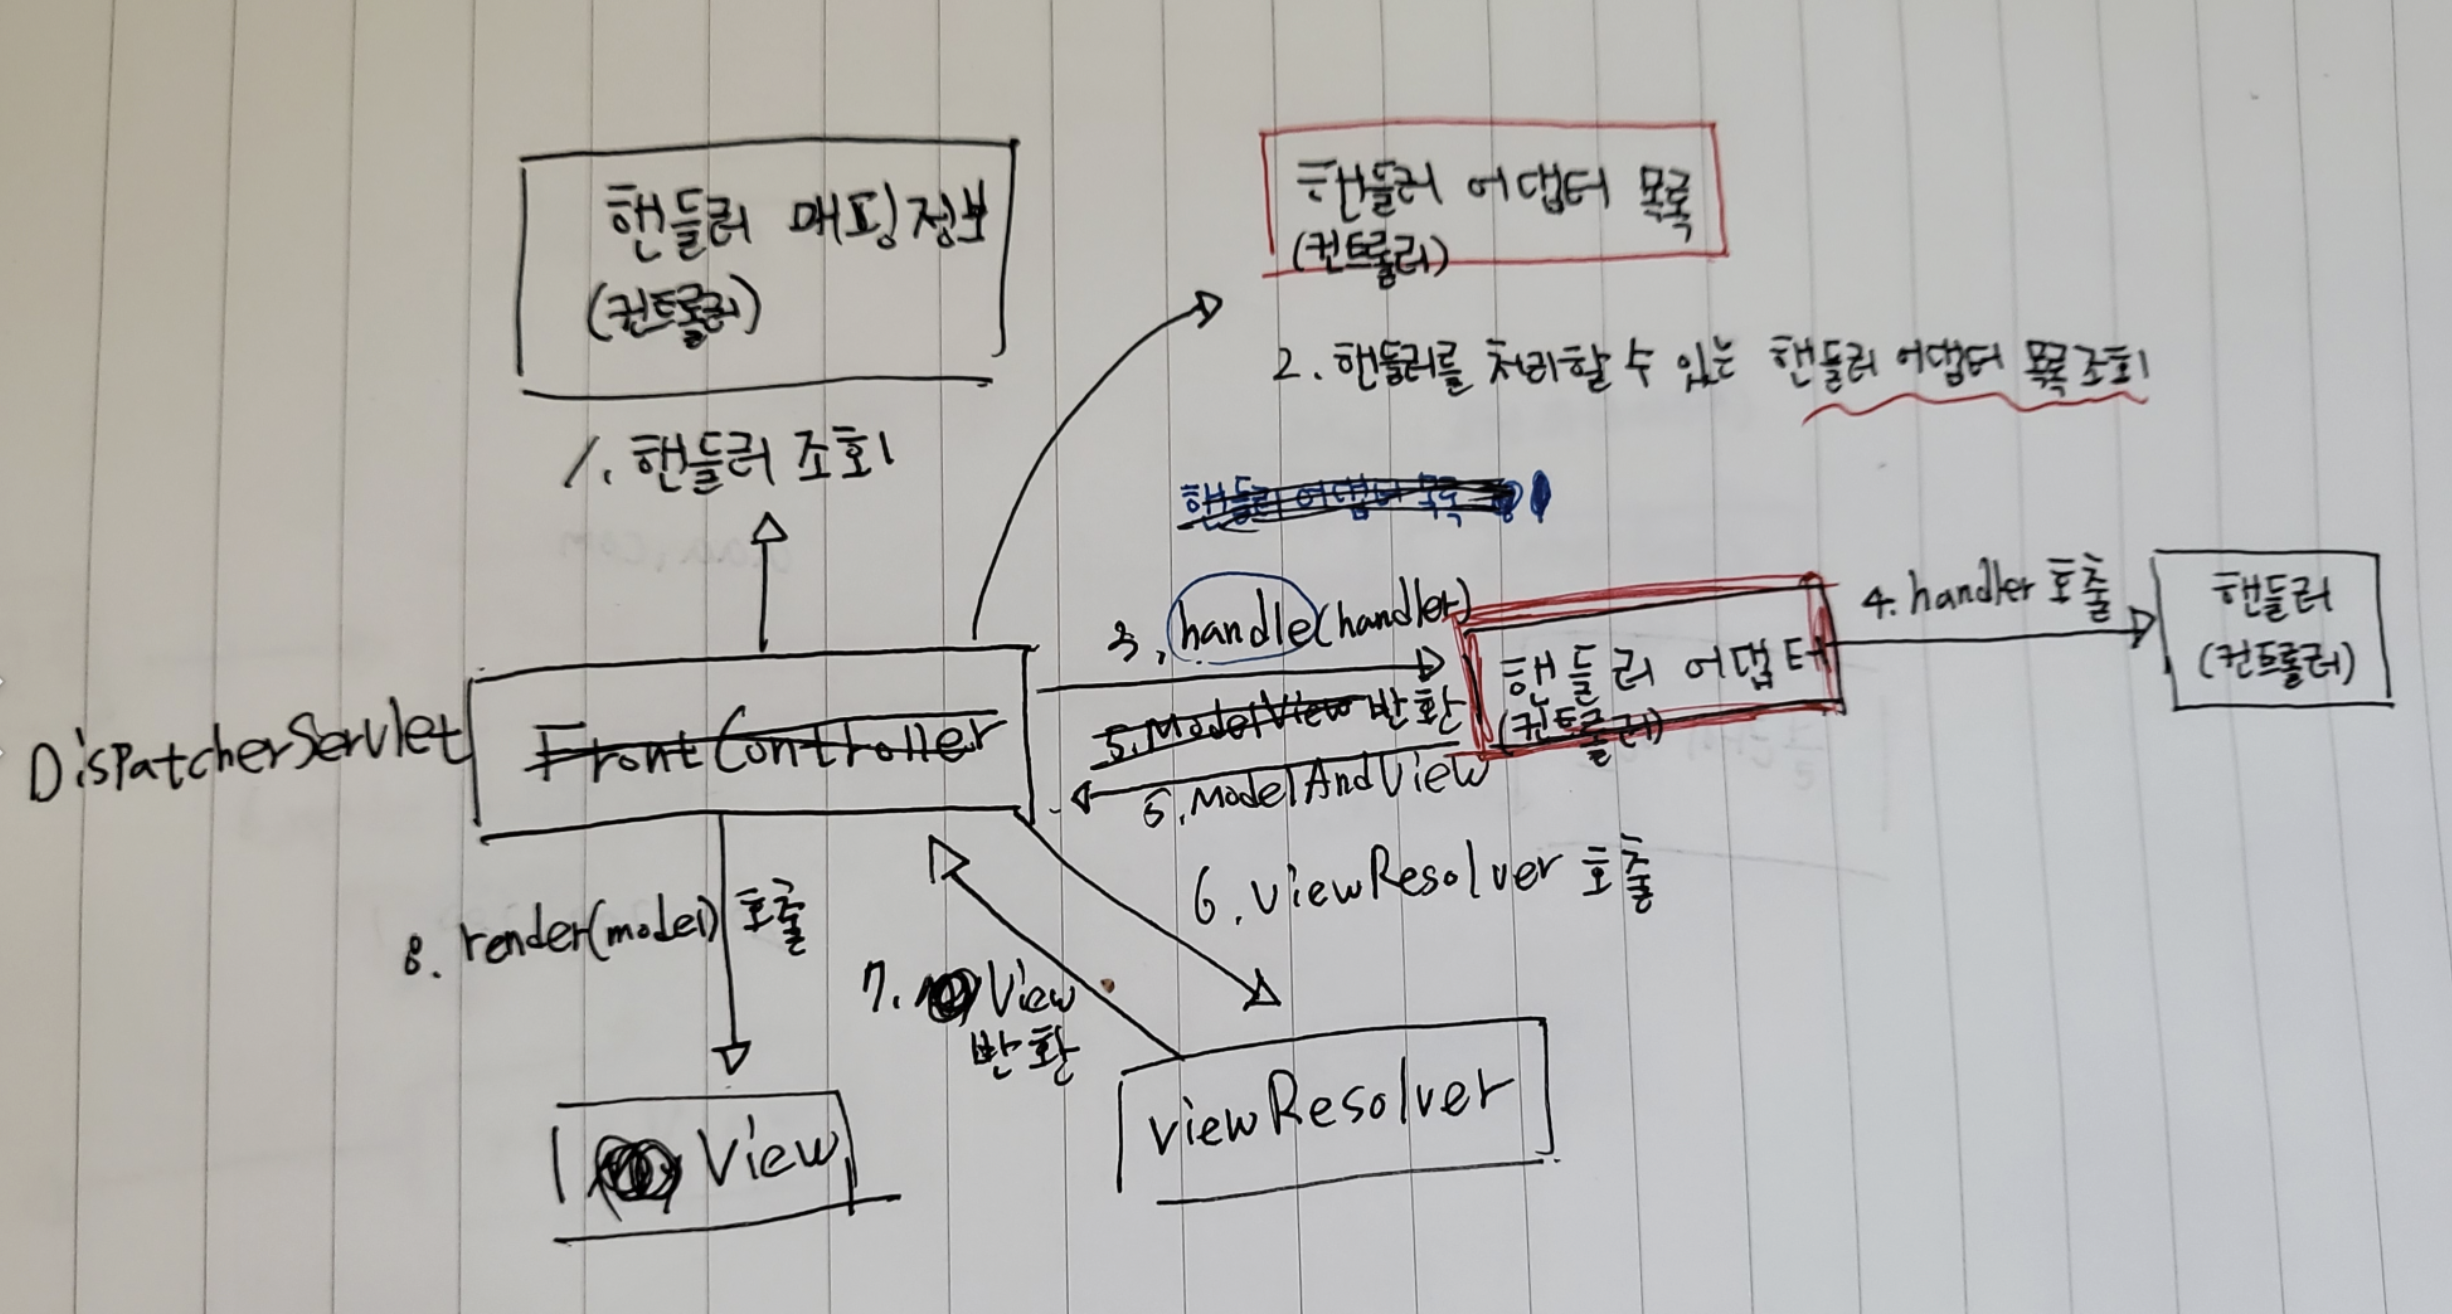 핸들러 매핑정보
(컨트롤러)
1. 핸들러 조회
핸들러 어댑터 목록
(컨트롤러)
2. 핸들러를 처리할 수 있는 핸들러 어댑터 목록 조회
핸들러 어댑터 목록
3. handle(handler)
핸들러 어댑터
(컨트롤러)
4. handler 호출
핸들러
(컨트롤러)
DispatcherServlet
FrontController
5. ModelView 반환
5. ModelAndView
6. viewResolver 호출
7. View
반환
8. render(model) 호출
View
viewResolver